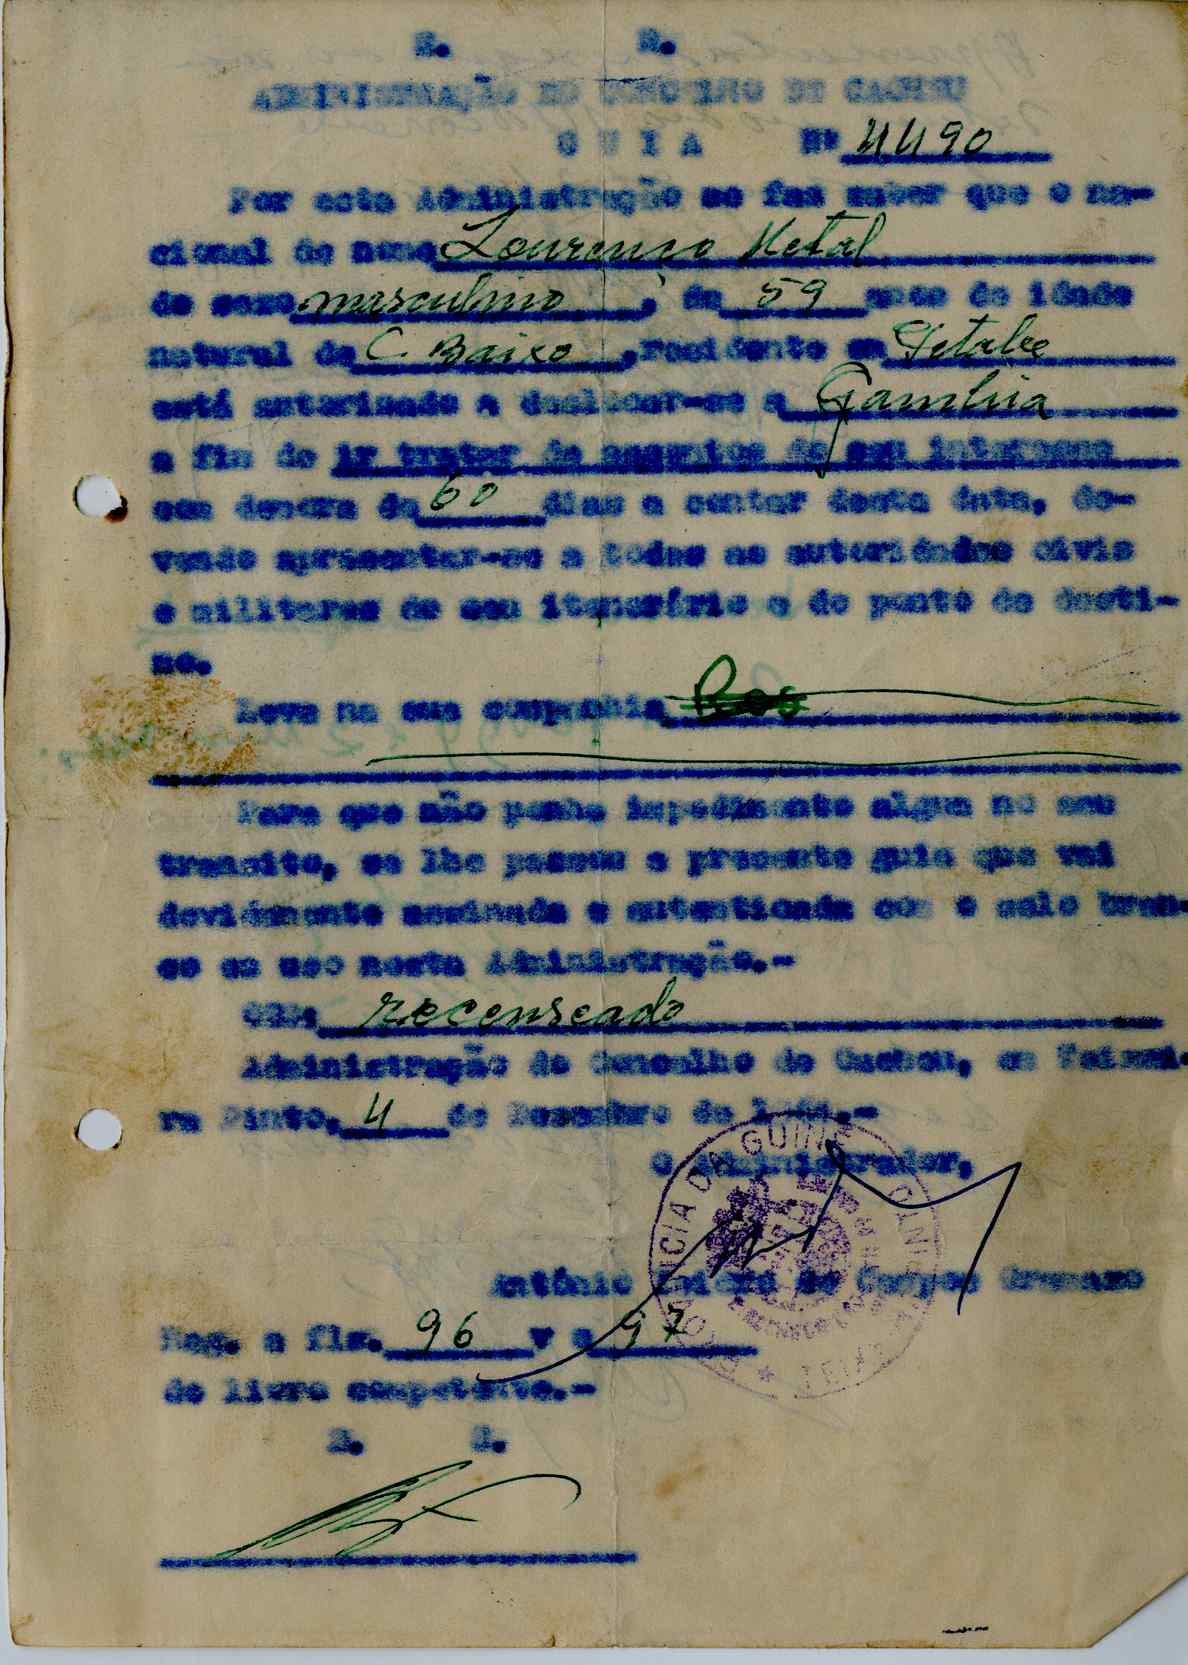 R. N.
ADMINISTRAÇÃO DO CONCELHO DE CACHEU
G U I A Nº 4490
Por esta Administração se faz saber que o na-
cional de nome Lourenço Metal
do sexo masculino, de 59 anos de idade
natural de C. Baixo, residente em
está autorizado a deslocar-se a Gambia
a fim de ir tratar de assuntos de seu interesse
com demora de 60 dias a contar desta data, de-
vendo apresentar-se a todas as autoridades civis
e militares do seu itenerário e do ponto de desti-
no.
Leva na sua companhia
Para que não ponha impedimento algum no seu
transito, se lhe passou a presente guia que vai
devidamente assinada e autenticada com o selo bran-
co em uso nesta Administração.-
recenseado
Administração do Concelho de Cacheu, em Teixei-
ra Pinto, 4 de Dezembro de
O Administrador,
António de Campos
Reg. a fls. 96 v a 97
do livro competente.-
PROVINCIA DA GUINÉ